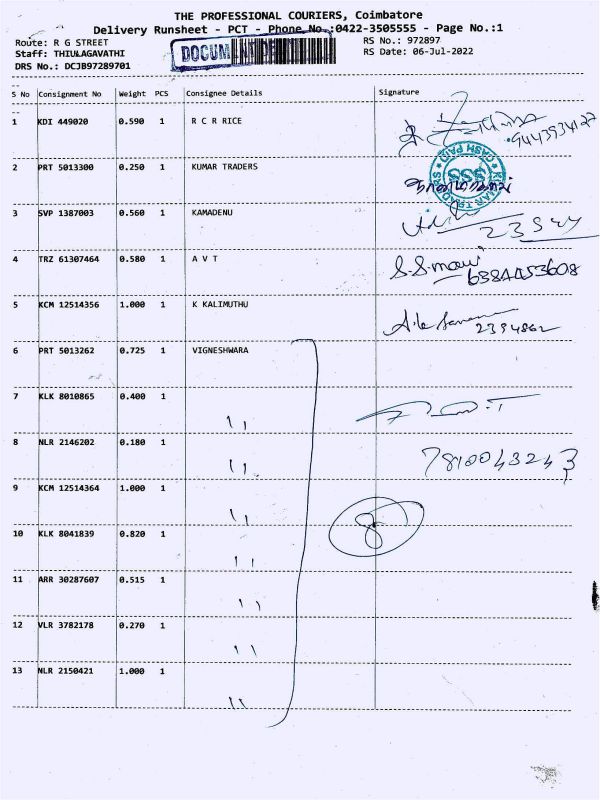 THE PROFESSIONAL COURIERS, Coimbatore
Delivery Runsheet - PCT - Phone No.:0422-3505555 - Page No.:1
Route: R G STREET
Staff: THIULAGAVATHI
DRS No.: DCJB97289701
DOCUM
RS No.: 972897
RS Date: 06-Jul-2022
S No Consignment No Weight PCS Consignee Details Signature
1 KDI 449020 0.590 1 R C R RICE
9443934127
2 PRT 5013300 0.250 1 KUMAR TRADERS
KUMAR TRADERS CASH PAID SSS
3 SVP 1387003 0.560 1 KAMADENU
4 TRZ 61307464 0.580 1 A V T
5 KCM 12514356 1.000 1 K KALIMUTHU
2394862
6 PRT 5013262 0.725 1 VIGNESHWARA
7 KLK 8010865 0.400 1
" 
8 NLR 2146202 0.180 1 7810043243
"
9 KCM 12514364 1.000 1
"
8
10 KLK 8041839 0.820 1
"
11 ARR 30287607 0.515 1
"
12 VLR 3782178 0.270 1
"
13 NLR 2150421 1.000 1
"